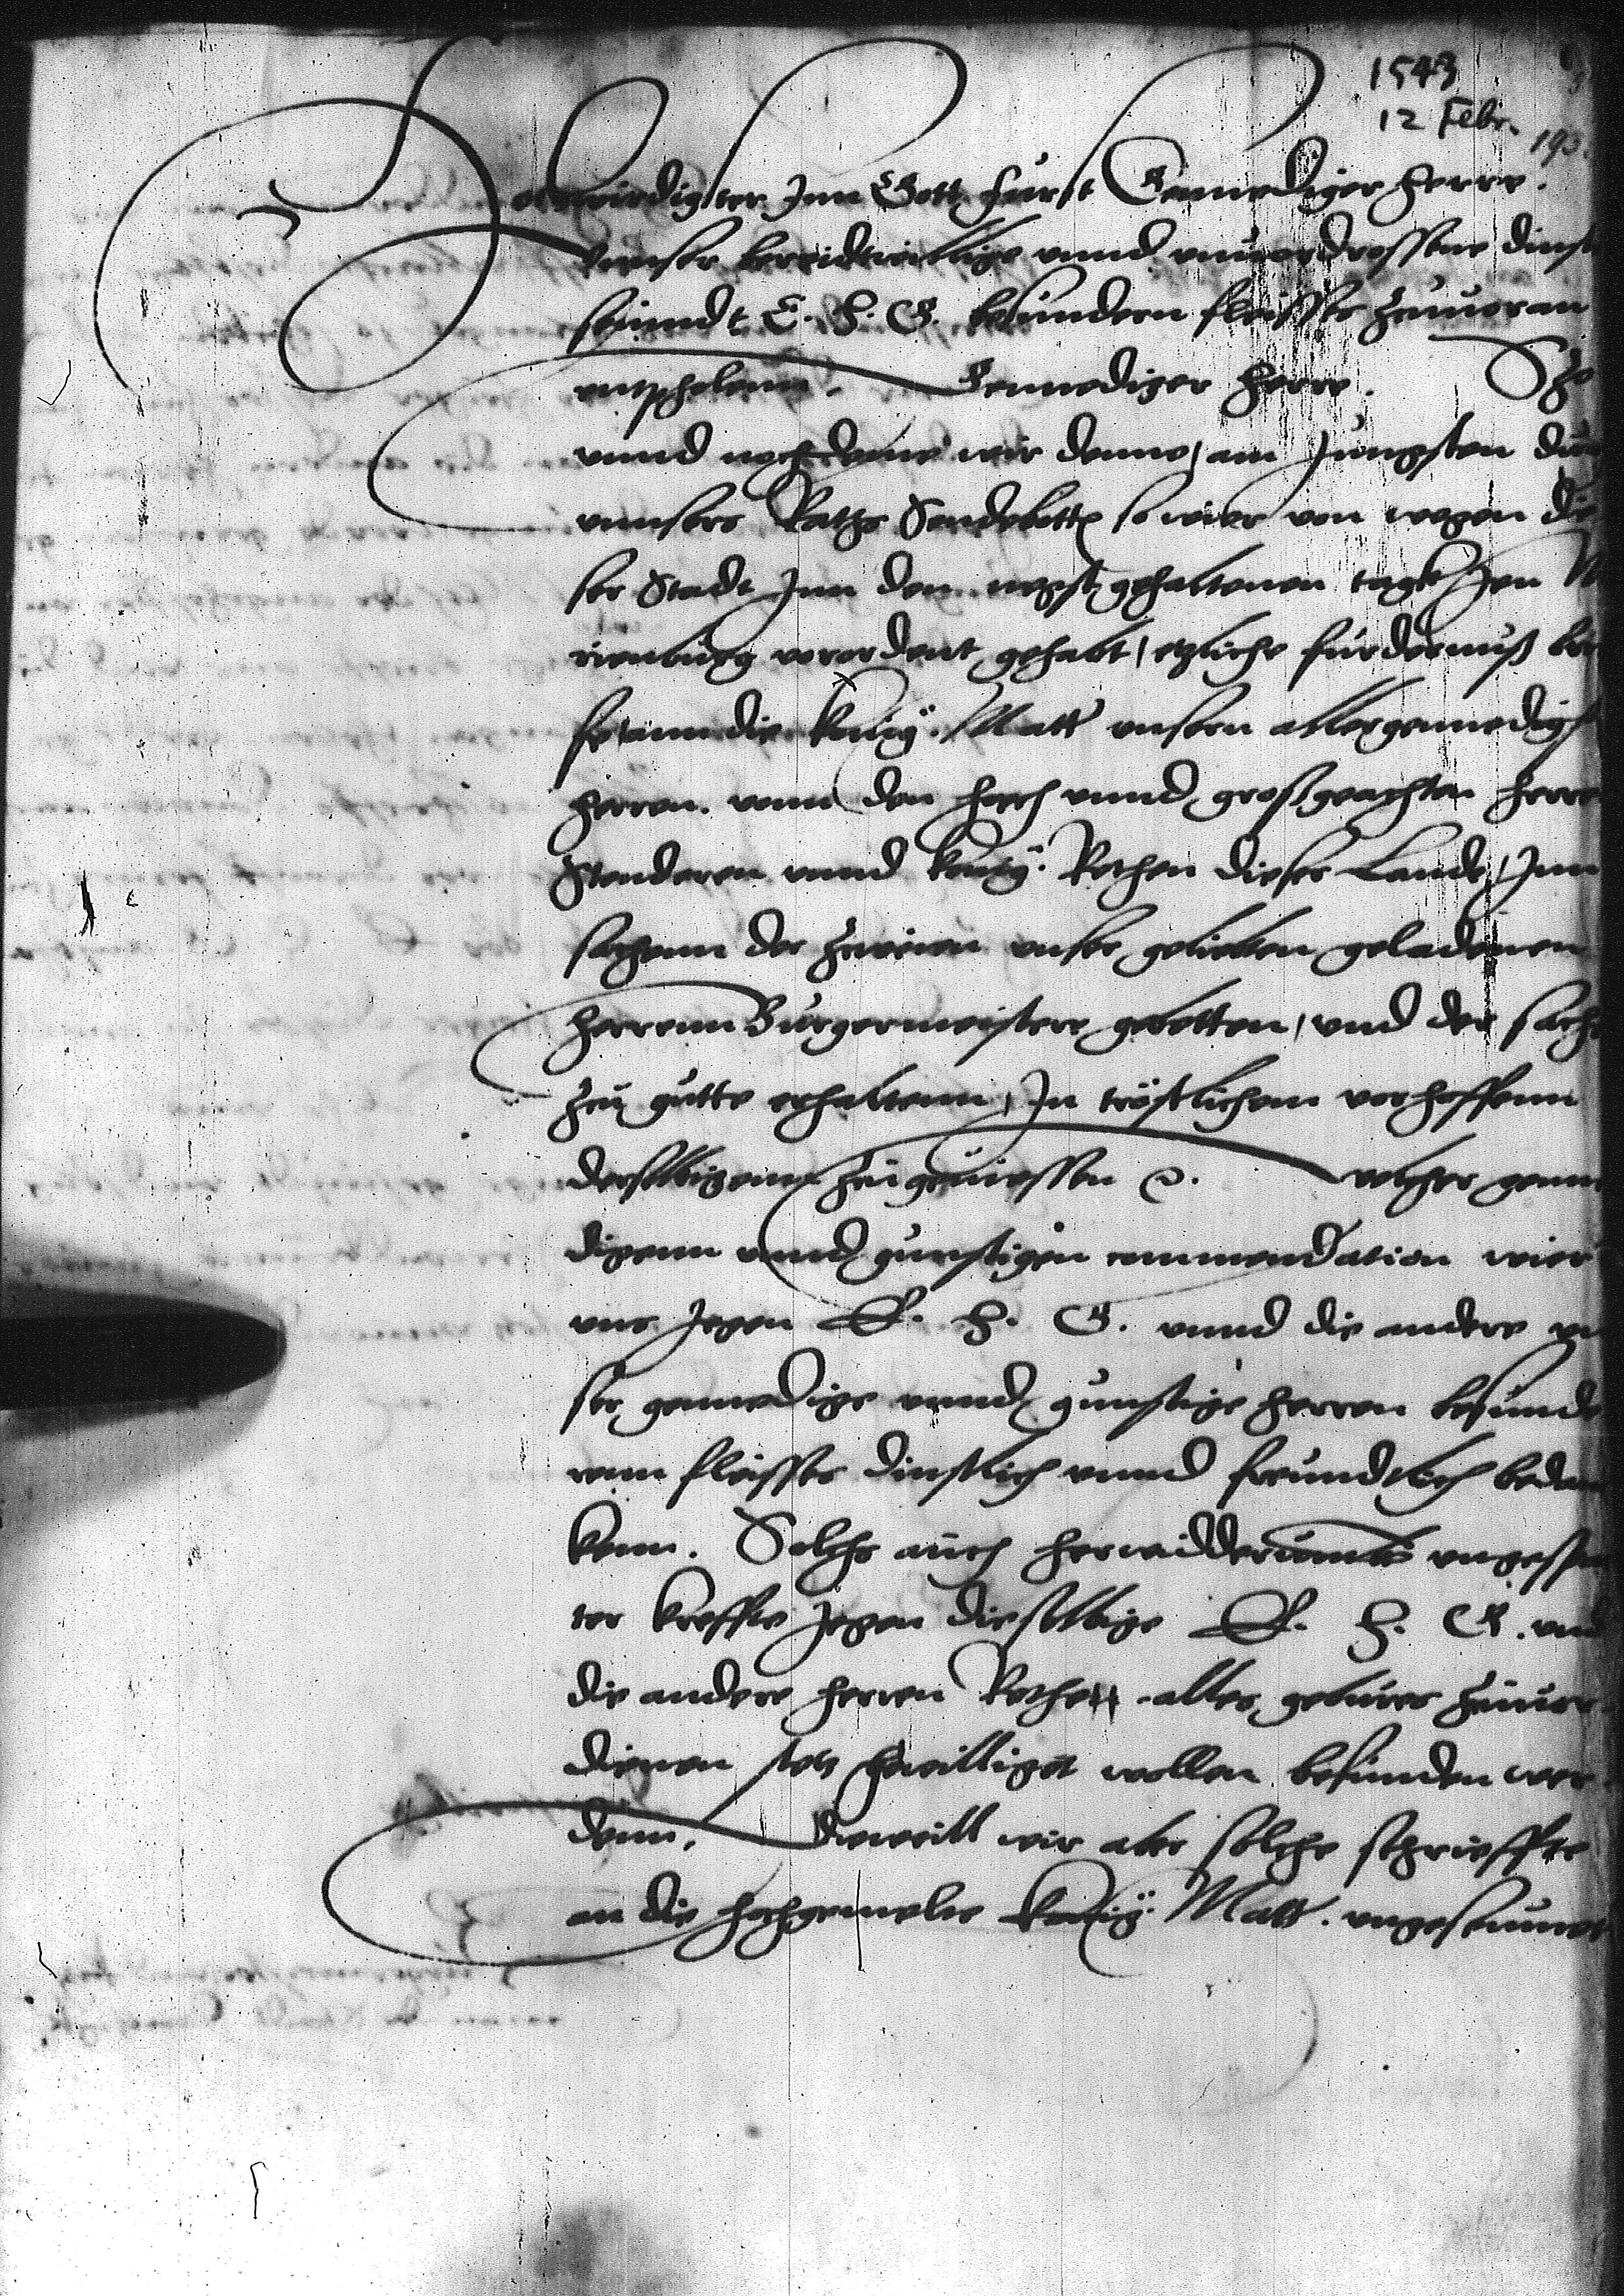 1543
12 Febr.
193.
Hochwirdigster Inn Gott Furst Gennediger Herre.
Vnnser bereidtwillige vnnd vnuerdrossene dinst
seinndt E. H. G. besundern fleisses zuuoran
entpholenn. Gennediger Herre. Szo
vnnd nochdeme wir denne, am Jungsten dur
vnnsers Raths Sendebotten so wier von wegen die
ser Stadt Inn den negst gehaltenen tagk zcu M
rienburg verordent gehabt, etzliche furdernuß brie
fe ann die König. Matt vnsern allergennedigst
herren. vonn den hoch vnnd großgeachten herre
Stenderen vnnd König. Rethen dieser Lande, Inn
sachenn der zweien vnser gelieben geladenen
herrenn Burgermeistere gebetten, vnd der sache
zcu gutte erhaltenn, In tröstlichem verhoffenn
derselbigenn zcu geniessen etc. welcher genne
digenn vnnd gunstigen commendation wier
vns Jegen E. H. G. vnnd die andere vn
ser gennedige vnnd gunstige herren besunde
renn fleisses dinstlich vnnd freundtlich bedan
kenn. Solchs auch herwidderumb vngespar
ter kreffte Jegen dieselbige E. H. G. vnd
die andere herren Rethe alles gebures zuuor
dienen stets gewilliget wollen befunden wer
denn. Dieweill wir aber solche schrieffte
an die hochgemelte König. Matt. vngeseumet